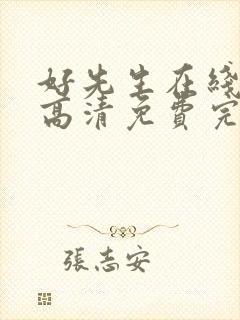 好先生在綫
高清免費完
張志安